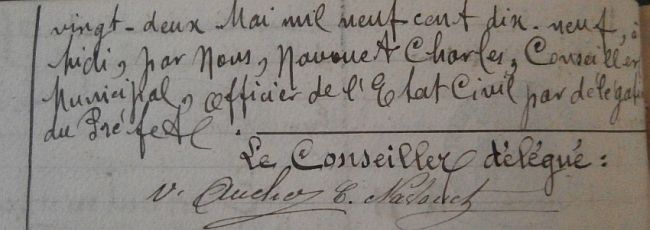 vingt-deux Mai mil neuf cent dix-neuf, à
midi, par Nous, Navouet Charles, Conseiller
Municipal, Officier de l'Etat Civil par délégati
du Préfet
Le Conseiller délégué:
V.